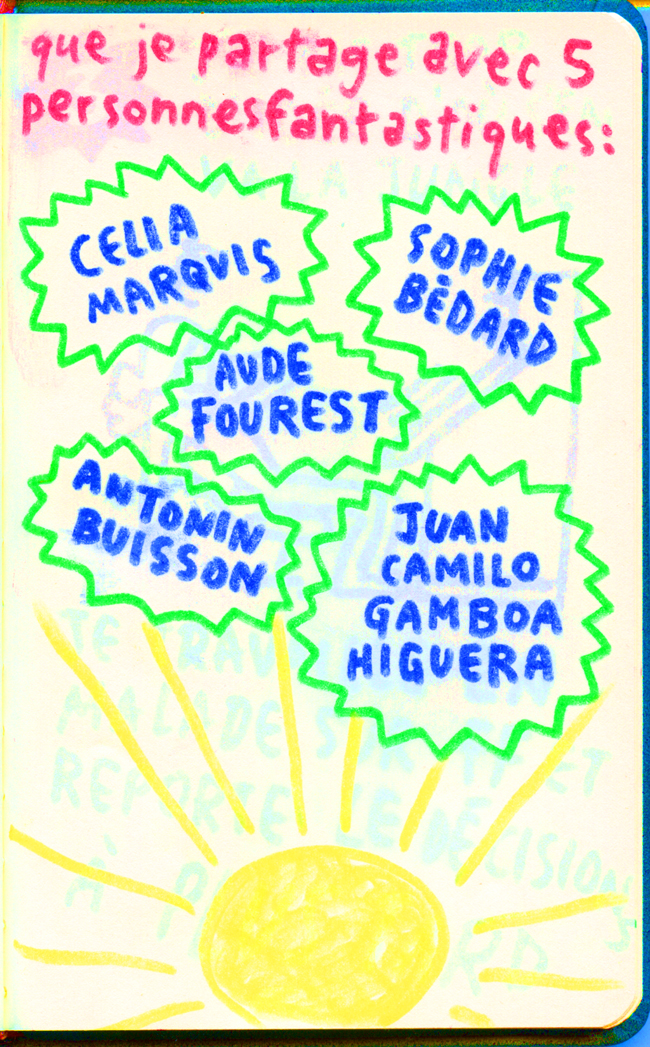 que je partage avec 5
personnesfantastiques:
CELIA
MARQUIS
SOPHIE
BÉDARD
AUDE
FOUREST
ANTONIN
BUISSON
JUAN
CAMILO
GAMBOA
HIGUERA